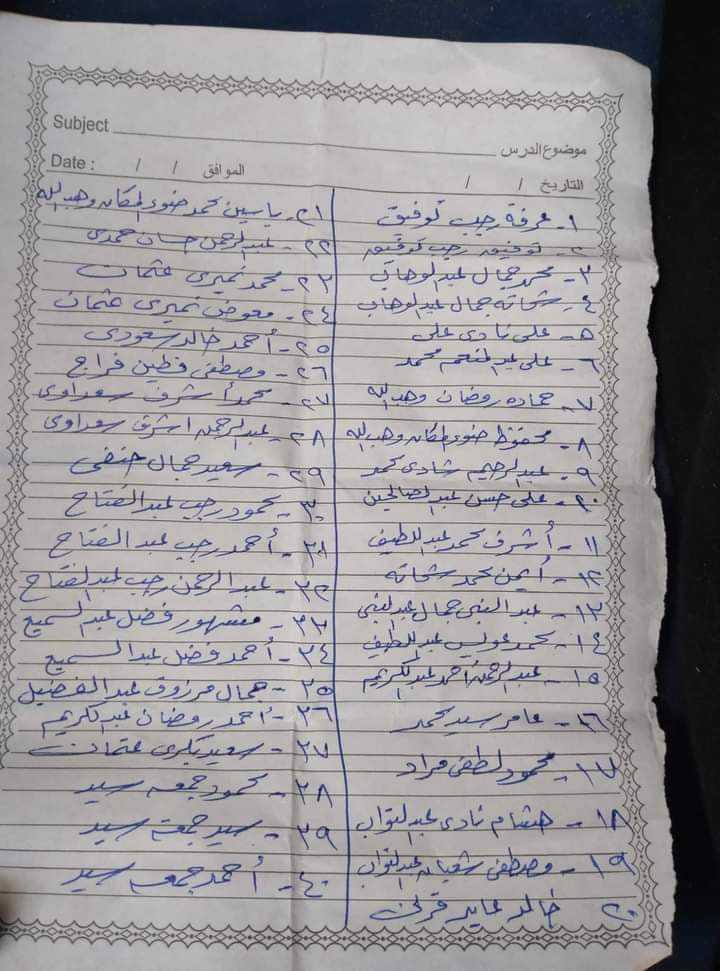 Subject
موضوع الدرس
Date : / / الموافق
التاريخ / /
١- عرفة رجب توفيق
٢- توفيق رجب توفيق
٣- محمد جمال عبد الوهاب
٤- شحاته جمال عبد الوهاب
٥- على نادى على
٦- على عبد المنعم محمد
٧- حماده رمضان وهب الله
٨- محفوظ ضوى المكان وهب الله
٩- عبد الرحيم شادى محمد
١٠- على حسن عبد الصالحين
١١- أشرف محمد عبد اللطيف
١٢- أيمن محمد شحاته
١٣- عبد النبى جمال عبد النبى
١٤- محمد عويس عبد اللطيف
١٥- عبد الرحمن احمد عبد الكريم
١٦- عامر سيد محمد
١٧- محمود لطفى مراد
١٨- هشام نادى عبد التواب
١٩- مصطفى شعبان عبد التواب
٢٠ خالد عايد قرنى
٢١- ياسين محمد ضوى المكان وهب الله
٢٢- عبد الرحمن حسان حمدى
٢٣- محمد نميرى عثمان
٢٤- معوض نميرى عثمان
٢٥- أحمد خالد سعودى
٢٦- مصطفى فطين فراج
٢٧- محمد أشرف سعداوى
٢٨- عبد الرحمن اشرف سعداوى
٢٩- سعيد جمال حنفى
٣٠- محمود رجب عبد الفتاح
٣١- أحمد رجب عبد الفتاح
٣٢- عبد الرحمن رجب عبد الفتاح
٣٣- مشهور فضل عبد السميع
٣٤- أحمد فضل عبد السميع
٣٥- جمال مرزوق عبد الفضيل
٣٦- أحمد رمضان عبد الكريم
٣٧- سعيد بكرى عثمان
٣٨- محمود جمعه سيد
٣٩- سيد جمعة سيد
٤٠- أحمد جمعه سيد